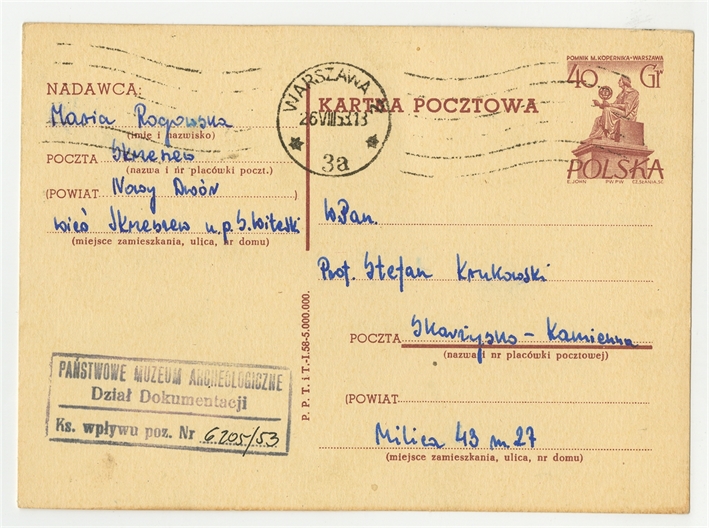 POMNIK M. KOPERNIKA-WARSZAWA
40 Gr
POLSKA
E. JOHN PWPW CZ. SŁANIA, SC.
WARSZAWA
26.VIII.53.13
3a
KARTKA POCZTOWA
NADAWCA:
Maria Rogowska
(imię i nazwisko)
POCZTA Skrzeszew
(nazwa i nr placówki poczt.)
(POWIAT Nowy Dwór )
wieś Skrzeszew u.p.
(miejsce zamieszkania, ulica, nr domu)
W.Pan.
Prof. Stefan Krukowski
POCZTA Skarżysko - Kamienna
(nazwa i nr placówki pocztowej)
(POWIAT )
Milica 43 m. 27
(miejsce zamieszkania, ulica, nr domu)
P. P. T. i T.-I.58-5.000.000.
PAŃSTWOWE MUZEUM ARCHEOLOGICZNE
Dział Dokumentacji
Ks. wpływu poz. Nr 6205/53